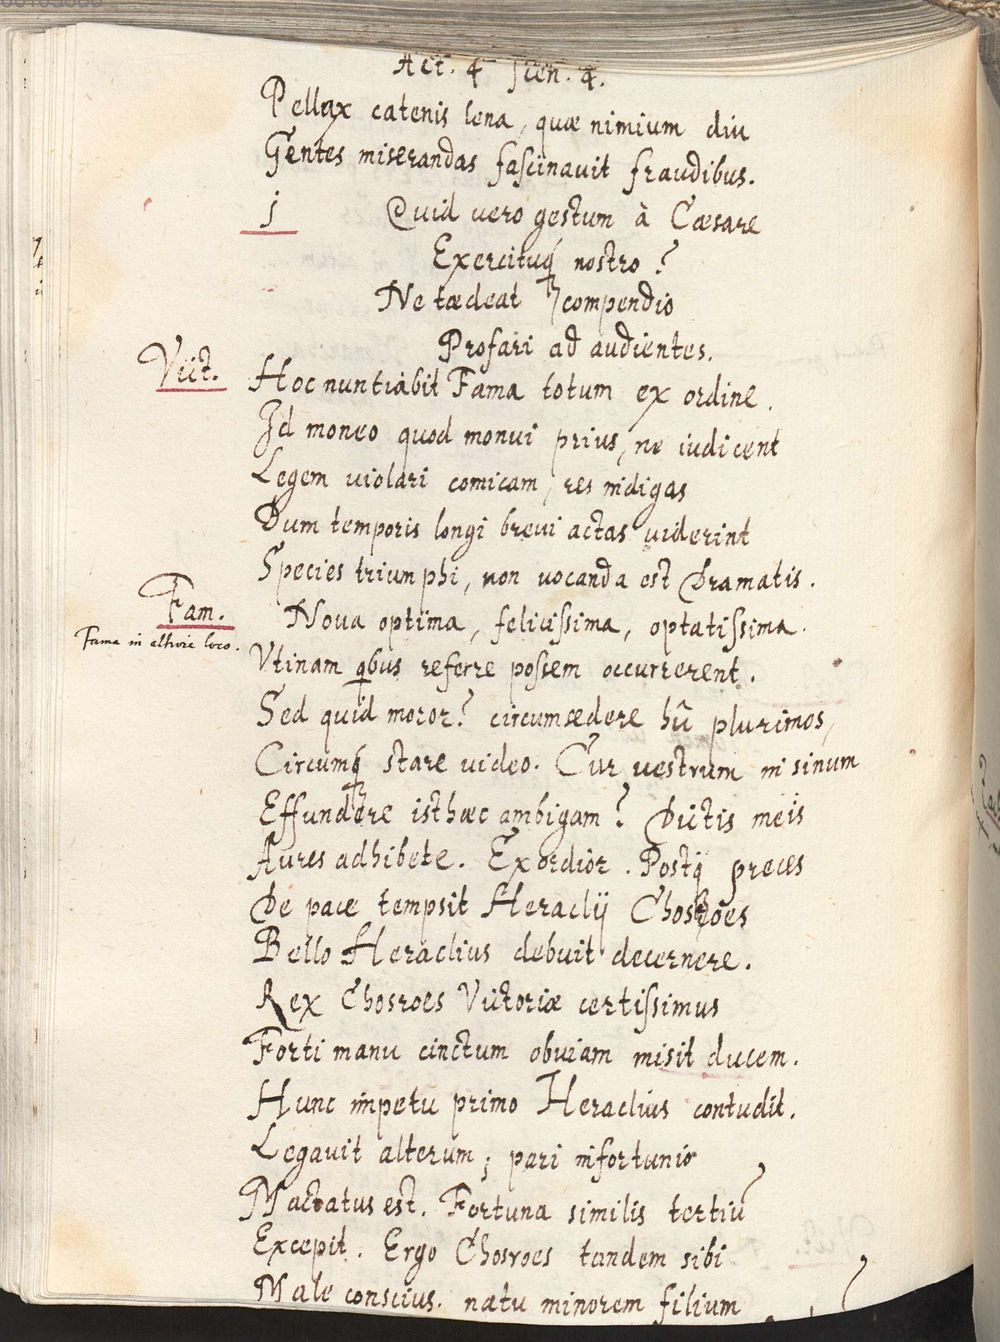 Act. 4 scen. 4.
Pellax catenis lena, quæ nimium diu
Gentes miserandas fascinavit fraudibus.
j Quid vero gestum à Cæsare
Exercituq; nostro?
Ne tædeat compendio
Profari ad audientes.
Vict. Hoc nuntiabit Fama totum ex ordine.
Id moneo quod monui prius, ne iudicent
Legem violari comicam, res indigas
Dum temporis longi brevi actas viderint
Species triumphi, non vocanda est Dramatis.
Fam. Nova optima, felicissima, optatissima.
Fama in altiore loco.
Vtinam qbus referre possem occurrerent.
Sed quid moror? circumsedere hũ plurimos,
Circumq; stare video. Cur vestrum in sinum
Effundere isthæc ambigam? Dictis meis
Aures adhibete. Exordior. Postq̃ preces
De pace tempsit Heraclij Chosroes
Bello Heraclius debuit decernere.
Rex Chosroes Victoriæ certissimus
Forti manu cinctum obviam misit ducem.
Hunc impetu primo Heraclius contudit.
Legavit alterum; pari infortunio
Mactatus est. Fortuna similis tertiũ
Excepit. Ergo Chosroes tandem sibi
Male conscius. natu minorem filium